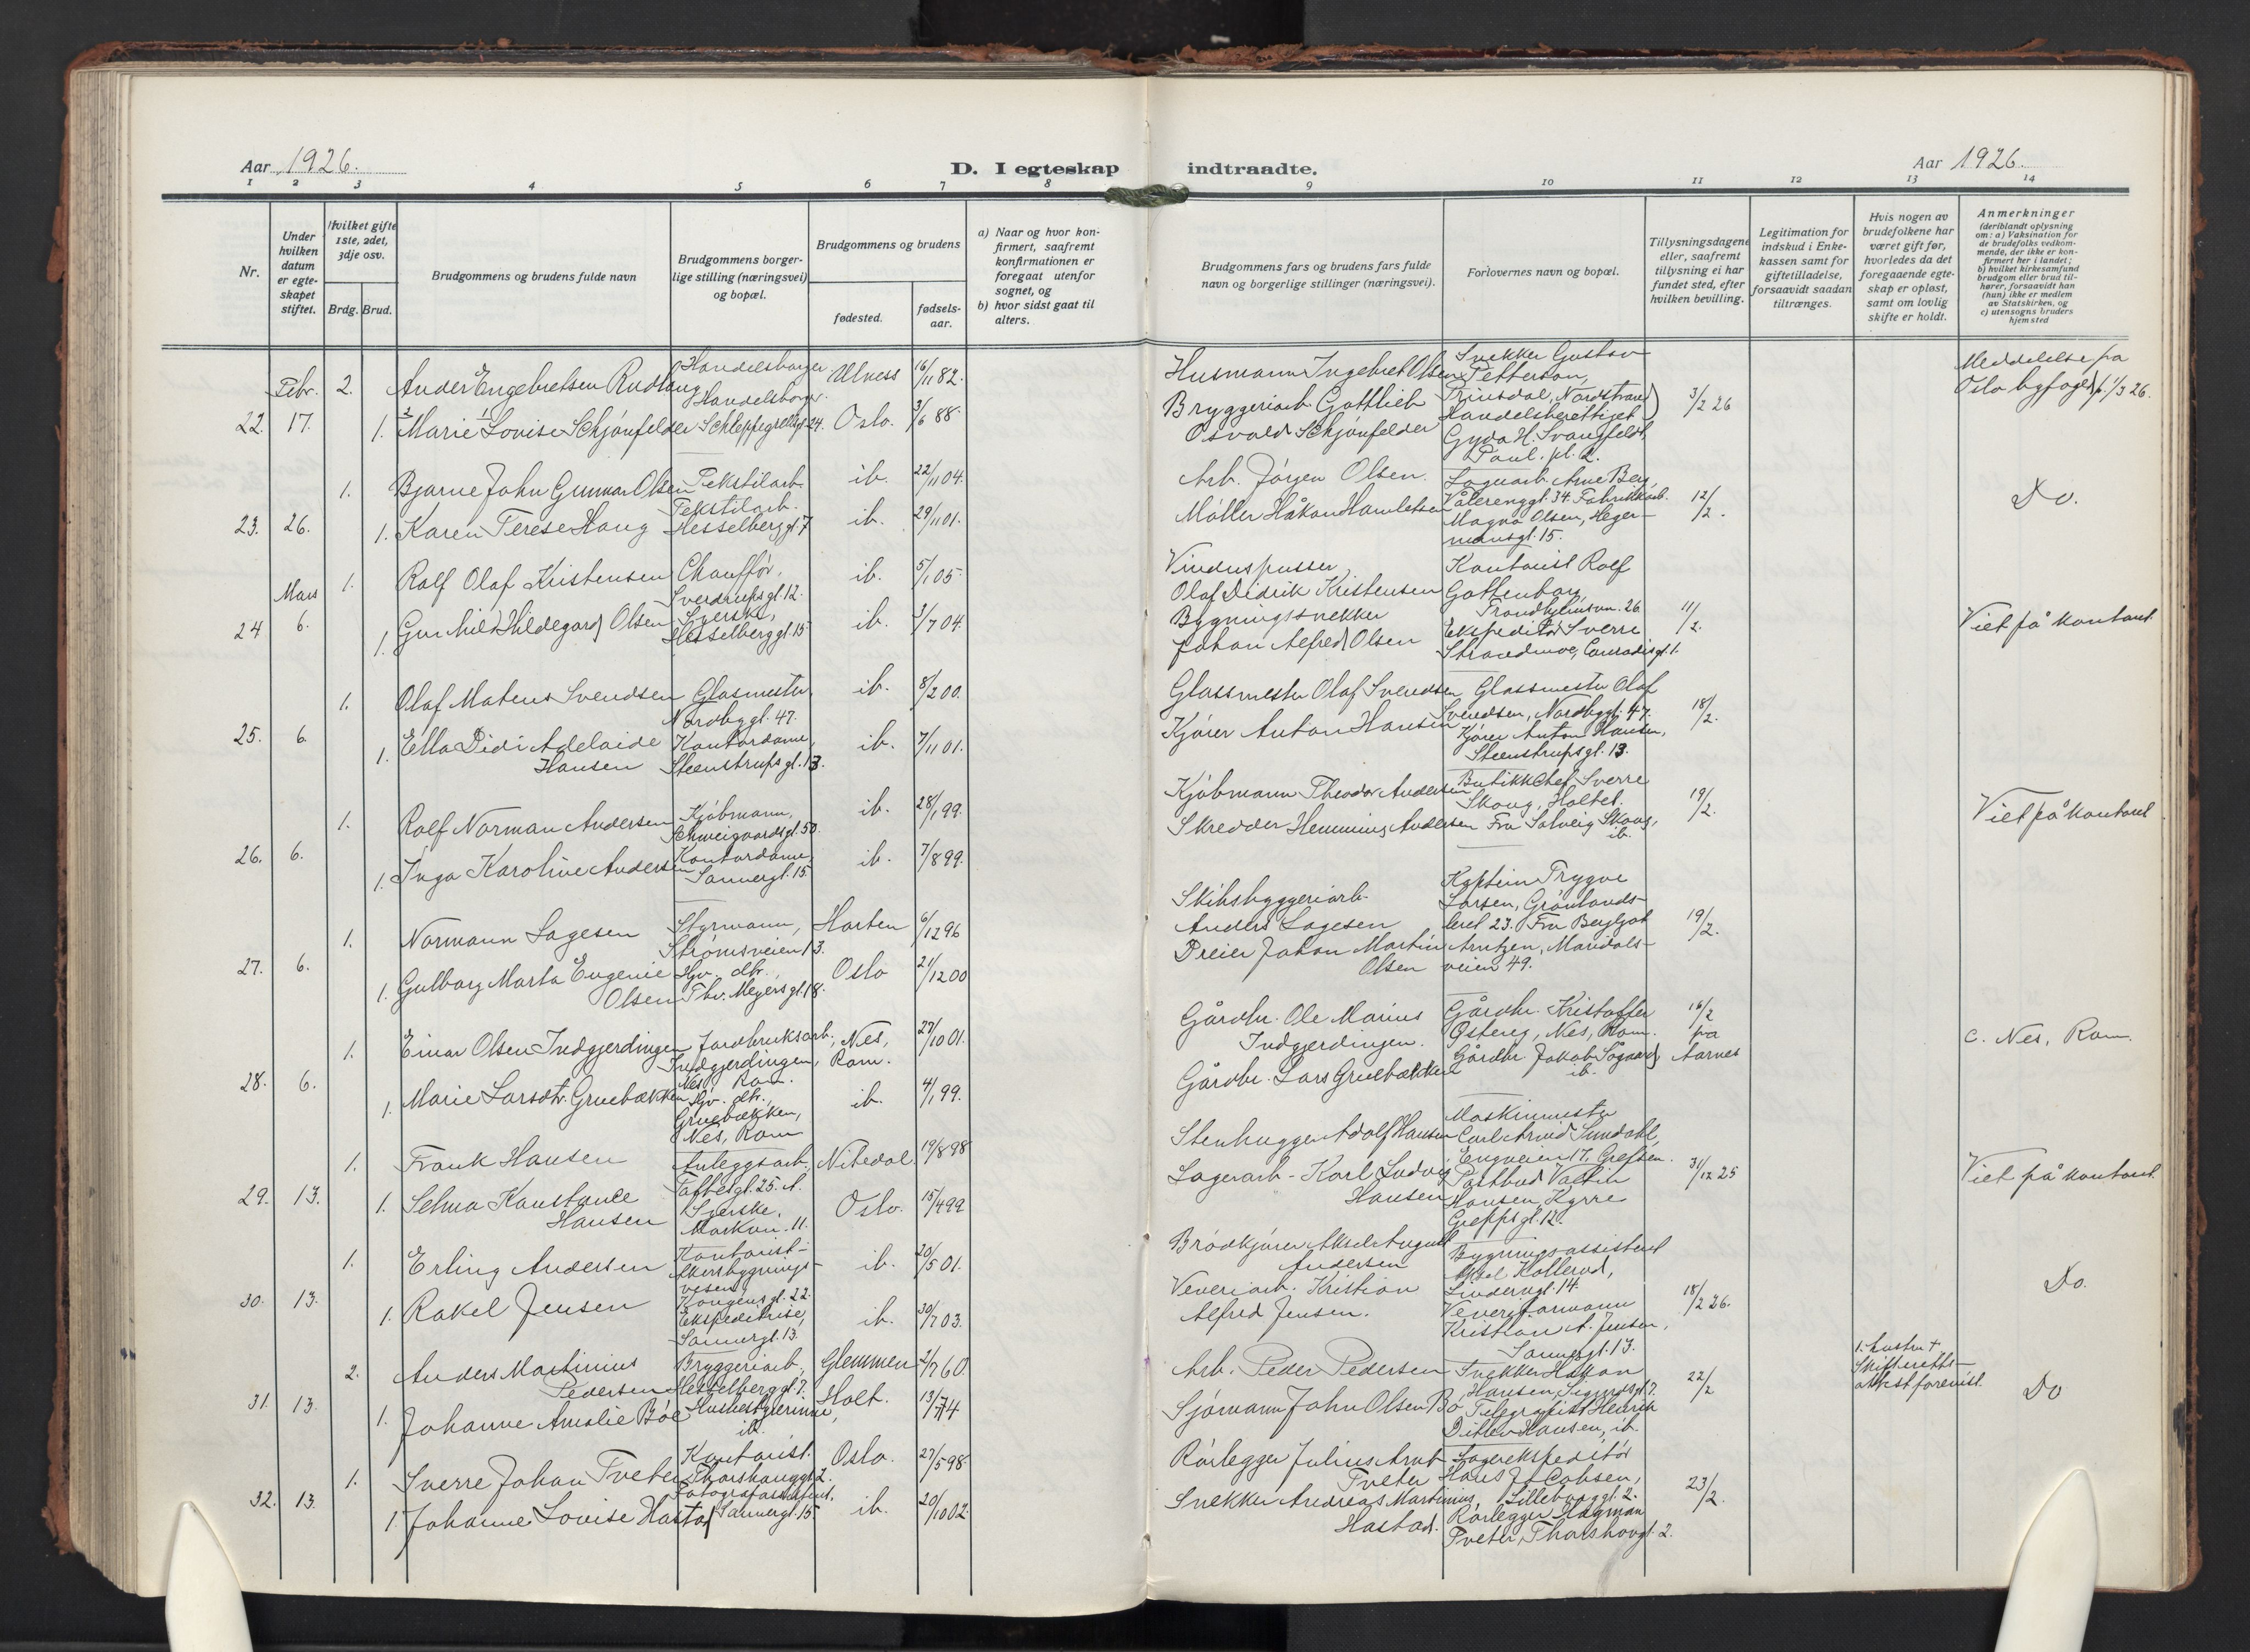 Aar 1926.
D. I egteskap indtraadte.
Aar 1926.
1 2 3 4 5 6 7 8 9 10 11 12 13 14
Nr.
Under hvilken datum er egteskapet stiftet.
Hvilket gifte 1ste, 2det, 3dje osv.
Brdg. Brud.
Brudgommens og brudens fulde navn
Brudgommens borgerlige stilling (næringsvei) og bopæl.
Brudgommens og brudens
fødested.
fødselsaar.
a) Naar og hvor konfirmert, saafremt konfirmationen er foregaat utenfor sognet, og
b) hvor sidst gaat til alters.
Brudgommens fars og brudens fars fulde navn og borgerlige stillinger (næringsvei).
Forlovernes navn og bopæl.
Tillysningsdagene eller, saafremt tillysning ei har fundet sted, efter hvilken bevilling.
Legitimation for indskud i Enkekassen samt for giftetilladelse, forsaavidt saadan tiltrænges.
Hvis nogen av brudefolkene har været gift før, hvorledes da det foregaaende egteskap er opløst, samt om lovlig skifte er holdt.
Anmerkninger (deriblandt oplysning om: a) Vaksination for de brudefolks vedkommende, der ikke er konfirmert her i landet; b) hvilket kirkesamfund brudgom eller brud tilhører, forsaavidt han (hun) ikke er medlem av Statskirken, og c) utensogns bruders hjemsted
22. Febr. 17.
2. Ander Engebretsen Rudhaug Handelsborger Ulness 16/11 82.
1. Marie Lovise Schjønfelder Handelsborger. Schleppegrellsgt. 24. Oslo. 3/6 88.
Husmann Ingebret Olsen
Bryggeriarb. Gottlieb Osvald Schjønfelder
Snekker Gustav Petterson, Trinsdal, Nordstrand
Handelsberettiget Gyda H. Svangfeldt, Paul. pl. 2.
3/2 26
Meddelelse fra Oslo byfoged 1/3 26.
23. 26.
1. Bjarne John Gunnar Olsen Tekstilarb. ib. 22/11 04.
1. Karen Terese Haug Tekstilarb. Hesselberggt. 7 ib. 29/11 01.
Arb. Jørgen Olsen.
Møller Håkon Hamletsen
Lagerarb. Arne Berg, Vålerenggt. 34. Fabrikkarb. Magna Olsen, Hegermansgt. 15.
12/2.
Do.
24. Mars 6.
1. Rolf Olaf Kristensen Chauffør, Sverdrupsgt. 12. ib. 5/1 05.
1. Gunhild Hildegard Olsen Syerske, Hesselberggt. 15 ib. 3/7 04.
Vinduspusser Olaf Didrik Kristensen
Bygningssnekker Johan Alfred Olsen
Kontorist Rolf Gottenborg, Trondhjemsvn. 26.
Ekspeditør Sverre Strandmoe, Conradisgt. 1.
11/2.
Viet på kontoret.
25. 6.
1. Olaf Mateus Svendsen Glasmester, Nordbygt. 47. ib. 8/2 00.
1. Ella Didi Adelaide Hansen Kontordame, Steenstrupsgt. 13. ib. 7/11 01.
Glassmester Olaf Svendsen
Kjører Anton Hansen
Glassmester Olaf Svendsen, Nordbygt. 47.
Kjører Anton Hansen, Steenstrupsgt. 13.
18/2.
26. 6.
1. Rolf Norman Andersen Kjøbmann, Schweigaardsgt. 50. ib. 28/1 99.
1. Inga Karoline Andersen Kontordame, Sannergt. 15 ib. 7/8 99.
Kjøbmann Theodor Andersen
Skredder Hemming Andersen
Butikkchef Sverre Skoug, Holtet.
Fru Solveig Skoug, ib.
19/2.
Viet på kontoret
27. 6.
1. Normann Lagesen Styrmann, Strømsveien 13. Horten 6/12 96
1. Gulborg Marta Eugenie Olsen Hjv. dtr., Thv. Meyersgt. 18. Oslo 21/12 00
Skibsbyggeriarb. Anders Lagesen
Dreier Johan Martin Olsen
Kaptein Trygve Larsen, Grønlandsleret 23.
Fru Bergljot Arntzen, Maridalsveien 49.
19/2.
28. 6.
1. Einar Olsen Indgjerdingen Jordbruksarb., Indgjerdingen, Nes, Rom. Nes, Rom. 27/10 01.
1. Marie Larsdtr. Gruebækken Hjv. dtr., Gruebækken, Nes, Rom ib. 4/1 99.
Gårdbr. Ole Marius Indgjerdingen.
Gårdbr. Lars Gruebækken
Gårdbr. Kristoffer Østereg, Nes, Rom.
Gårdbr. Jakob Søgaard, ib.
16/2 fra Aarnes
c. Nes, Rom.
29. 13.
1. Frank Hansen Anleggsarb. Toftesgt. 25. A. Nitedal 19/8 98
1. Selma Konstance Hansen Syerske, Markvn. 11. Oslo. 15/4 99
Stenhugger Adolf Hansen
Lagerarb. Karl Ludvig Hansen
Maskinmester Carl Arvid Sundahl, Engveien 17, Grefsen.
Postbud Valtin Hansen, Kyrre Greppsgt. 12.
31/12 25
Viet på kontoret.
30. 13.
1. Erling Andersen Kontorist Akersbygningsvesen Kongensgt. 22. ib. 20/5 01.
1. Rakel Jensen Ekspeditrise, Sannergt. 13. ib. 30/7 03.
Brødkjører Aksel August Andersen
Veveriarb. Kristian Alfred Jensen.
Bygningsassistent Aksel Kollerud, Linderngt. 14.
Veveriformann Kristian A. Jensen, Sannergt. 13.
18/2 26.
Do.
31. 13.
2. Anders Martinius Pedersen Bryggeriarb., Hesselberggt. 7. Glemmen 2/7 60
1. Johanne Amalie Bøe Husbestyrerinne, ib. Holt. 13/7 74
Arb. Peder Pedersen
Sjømann John Olsen Bø
Snekker Håkon Hansen, Sigurdsgt. 7.
Telegrafist Henrik Ditlev Hansen, ib.
22/2
1. hustru + Skifteretts-attest forevist.
Do
32. 13.
1. Sverre Johan Tveter Kontorist. Thorshauggt. 2. Oslo. 27/5 98
1. Johanne Lovise Hastad Fotografassistent, Sannergt. 15 ib. 20/10 02.
Rørlegger Julius Arnt Tveter
Snekker Andreas Martinius Hastad.
Lagerekspeditør Hans Jacobsen, Lilleborggt. 2.
Rørlegger Hagman Tveter, Thorshovgt. 2.
23/2.